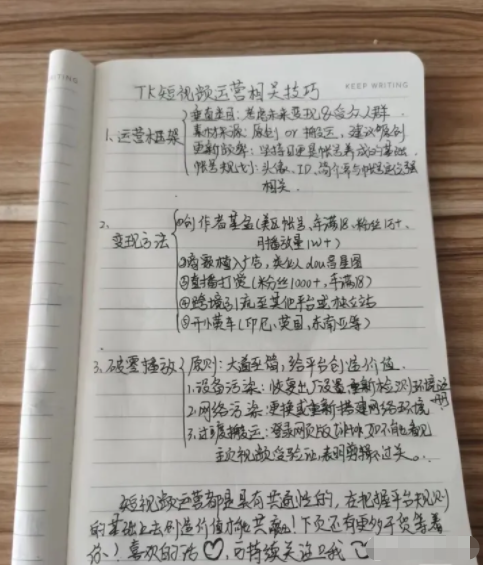 WRITING
KEEP WRITING
TK短视频运营相关技巧
垂直类目：考虑未来变现&受众人群
1、运营框架
素材来源：原创 or 搬运，建议原创
更新频率：坚持日更是帐号养成的基础
帐号规划：头像、ID、简介等与帐号定位强
相关。
2、
变现方法
①创作者基金（美区帐号、年满18、粉丝1万+，
月播放量1W+）
②商家植入广告，类似人dou音星图
③直播打赏（粉丝1000+，年满18）
④跨境引流至其他平台或独立站
⑤开小黄车（印尼、英国、东南亚等）
3、破零播放
原则：大道至简，给平台创造价值
1.设备污染：恢复出厂设置重新检测环境注册
2.网络污染：更换或重新搭建网络环境
3.过度搬运：登录网页版 如不能看见
主页视频 验证，表明剪辑不过关。
短视频运营都是具有共通性的，在把握平台规则
的基础上去创造价值才能共赢！下页还有更多干货等着
你！喜欢的话♡，可持续关注我~